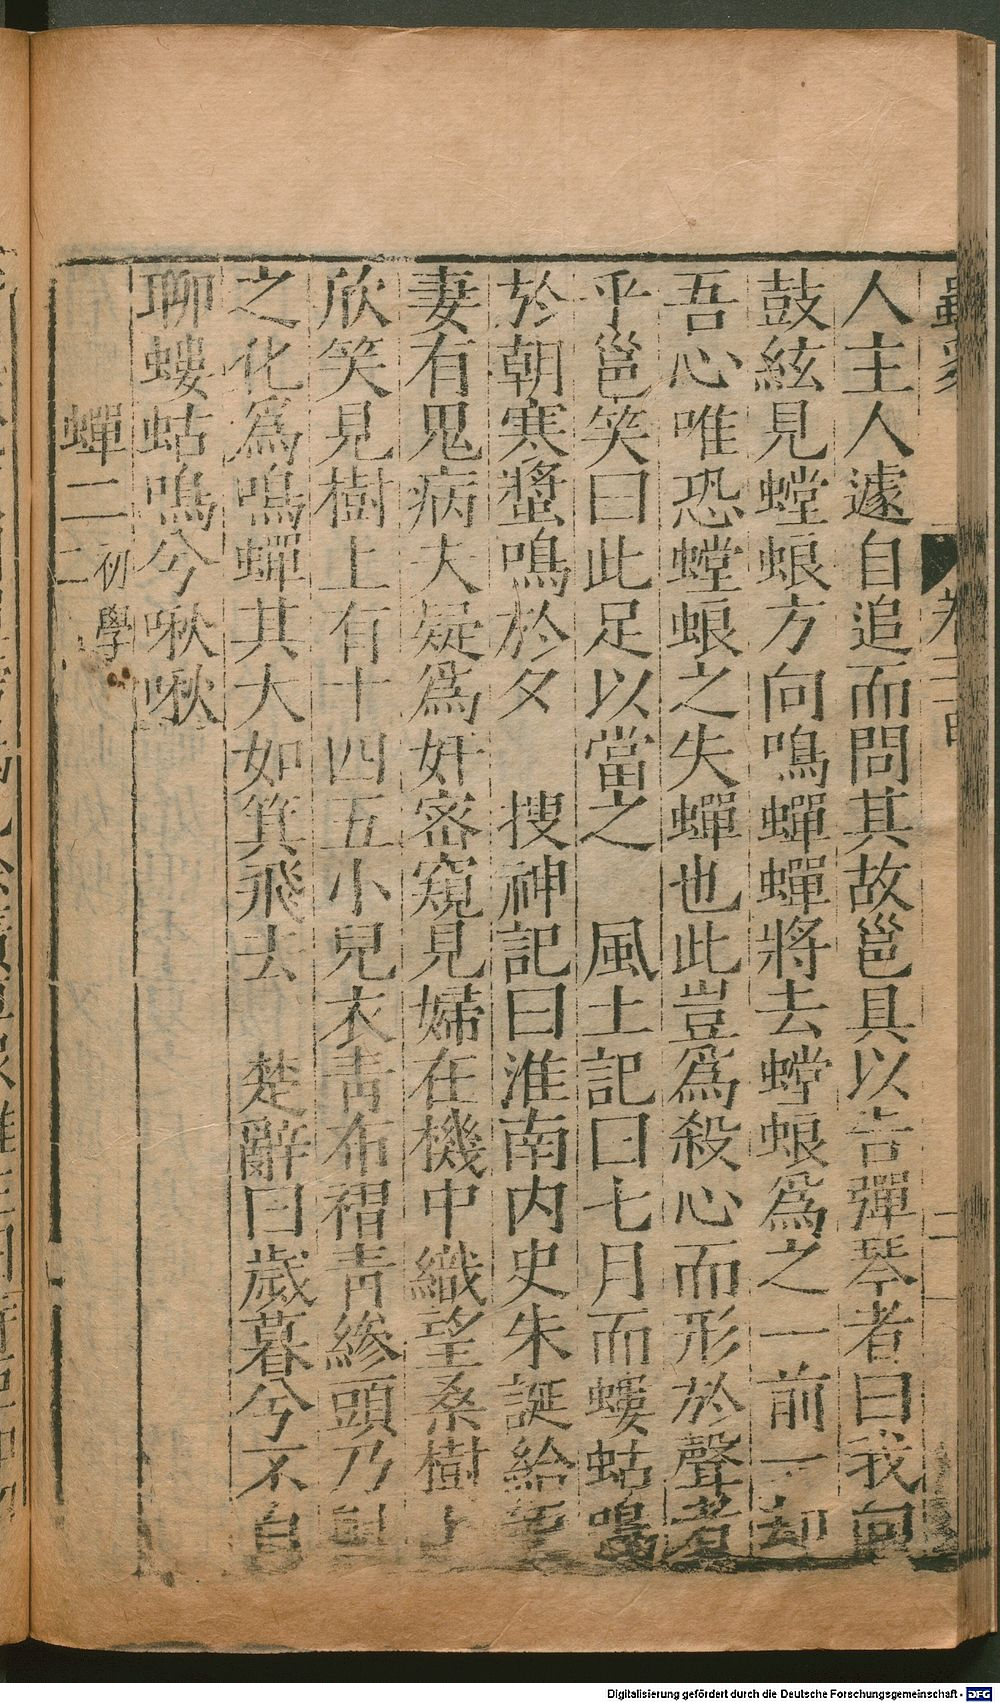 人主人遽自追而問其故邕具以告彈琴者曰我向
鼓絃見螳蜋方向鳴蟬蟬將去螳蜋爲之一前一却
吾心唯恐螳蜋之失蟬也此豈爲殺心而形於聲者
乎邕笑曰此足以當之 風土記曰七月而螻蛄鳴
於朝寒螿鳴於夕 搜神記曰淮南内史朱誕給使
妻有鬼病夫疑爲奸密窺見婦在機中織望桑樹上
欣笑見樹上有十四五小兒衣青布褶青縿頭乃射
之化爲鳴蟬其大如箕飛去 楚辭曰歲暮兮不自
聊螻蛄鳴兮啾啾
蟬二 初學
二
Digitalisierung gefördert durch die Deutsche Forschungsgemeinschaft - DFG